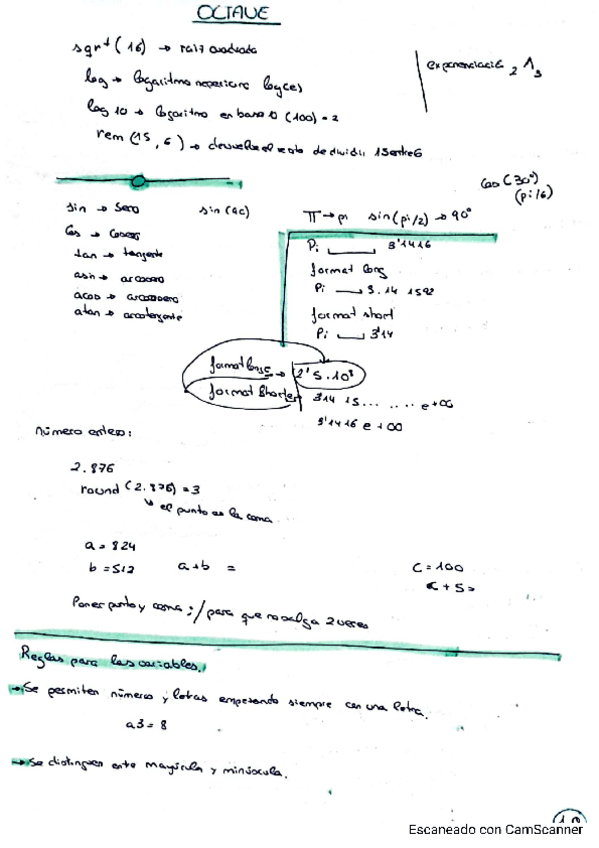 OCTAVE
sqrt (16) → raiz cuadrada
exponenciació 2^3
log → logaritmo neperiano log(es)
log 10 → logaritmo en base 10 (100) = 2
rem (15, 6) → devuelve el resto de dividir 15 entre 6
cos (30°)
(pi/6)
sin → seno
sin (ac)
π → pi sin (pi/2) → 90°
cos → coseno
Pi 3'1416
tan → tangente
format long
asin → arcoseno
Pi 3.14 1592
acos → arcocoseno
format short
atan → arcotangente
Pi 3'14
format long e → 2'5.10³
format short e 3'14 15... ..... e+00
3'1416 e+00
Número entero:
2.876
round (2.876) = 3
↳ el punto es la coma
a = 824
b = 512 a+b =
c = 100
c + 5 =
Poner punto y coma ; / para que no salga 2 veces
Reglas para las variables.
→ Se permiten números y letras empezando siempre con una letra.
a3 = 8
→ Se distinguen ente mayúscula y minúscula.
Escaneado con CamScanner